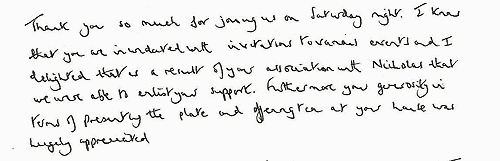 Thank you so much for joining us on Saturday night. I know
that you are inundated with invitations to various events and I
delighted that as a result of your association with Nicholas that
we were able to enlist your support. Furthermore your generosity in
terms of presenting the plate and offering tea at your house was
hugely appreciated